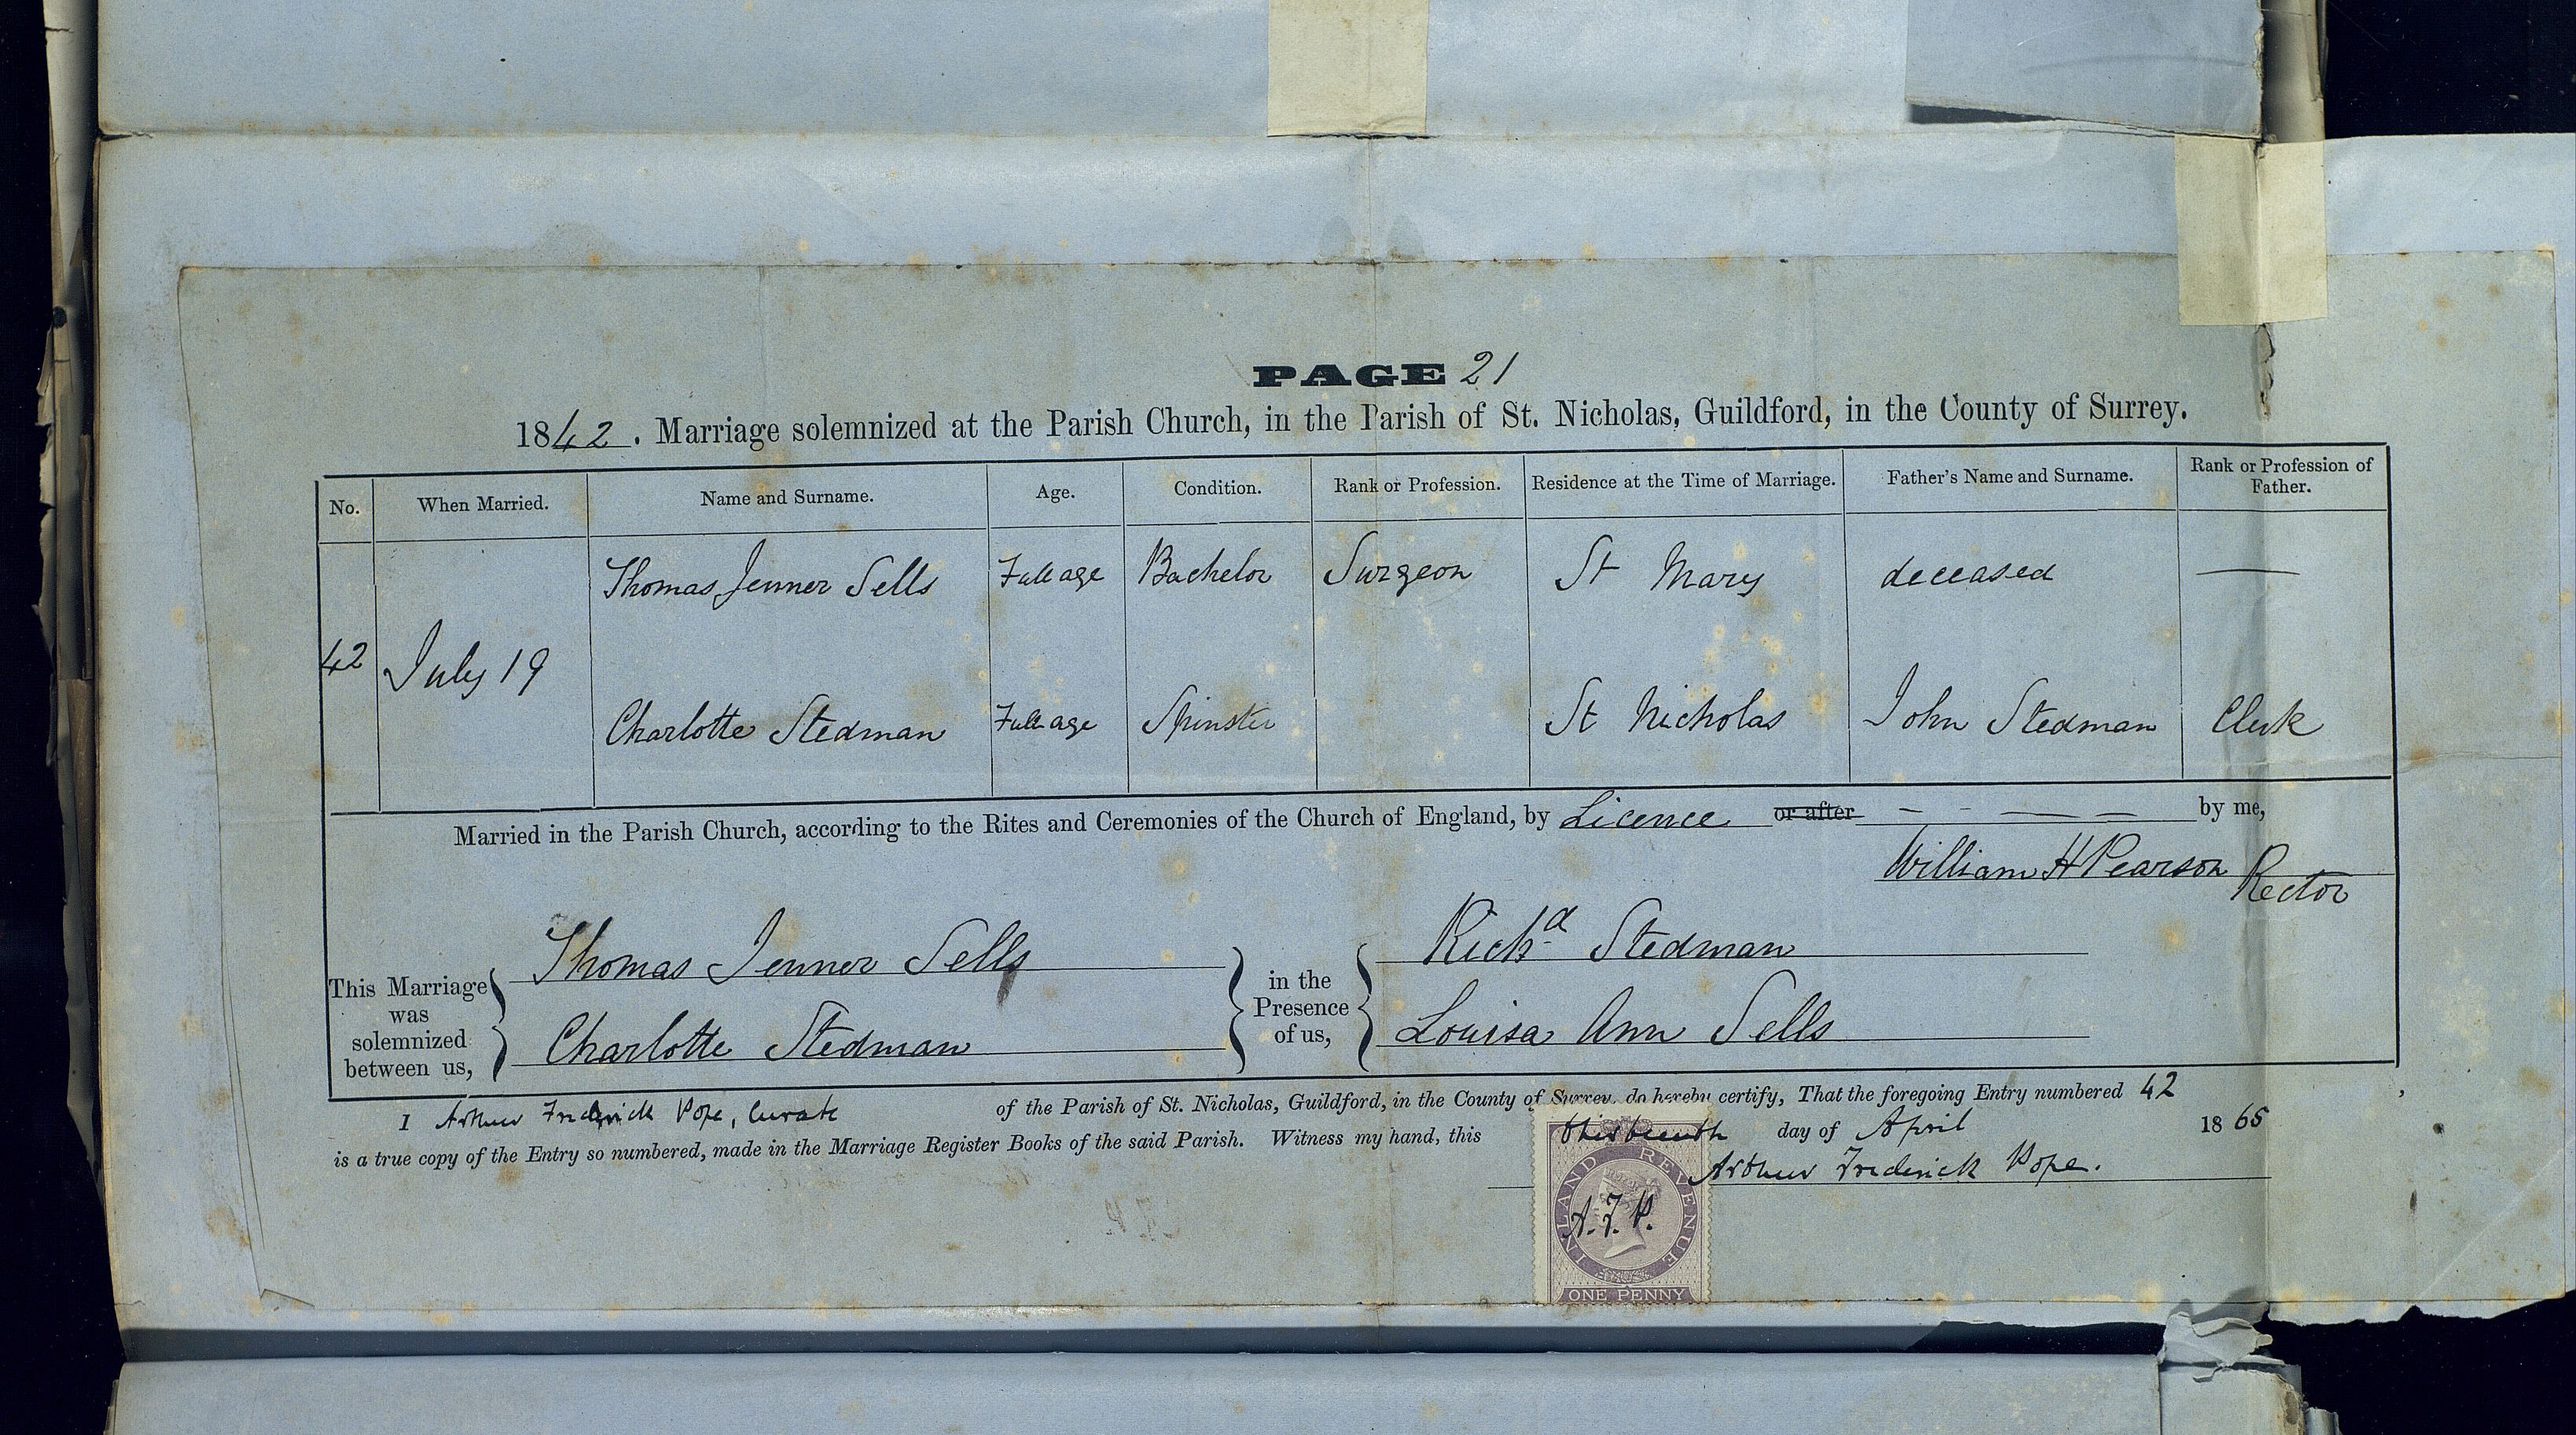 PAGE 21
1842. Marriage solemnized at the Parish Church, in the Parish of St. Nicholas, Guildford, in the County of Surrey.
No. When Married. Name and Surname. Age. Condition. Rank or Profession. Residence at the Time of Marriage. Father's Name and Surname. Rank or Profession of Father.
Thomas Jenner Sells Full age Bachelor Surgeon St Mary deceased —
42 July 19
Charlotte Stedman Full age Spinster St Nicholas John Stedman Clerk
Married in the Parish Church, according to the Rites and Ceremonies of the Church of England, by Licence or after — — — — by me,
William H Pearson Rector
This Marriage was solemnized between us,
Thomas Jenner Sells
Charlotte Stedman
in the Presence of us,
Richd Stedman
Louisa Ann Sells
I Arthur Frederick Pope, Curate of the Parish of St. Nicholas, Guildford, in the County of Surrey, do hereby certify, That the foregoing Entry numbered 42
is a true copy of the Entry so numbered, made in the Marriage Register Books of the said Parish. Witness my hand, this thirteenth day of April 1865
Arthur Frederick Pope.
INLAND REVENUE
A.F.P.
ONE PENNY